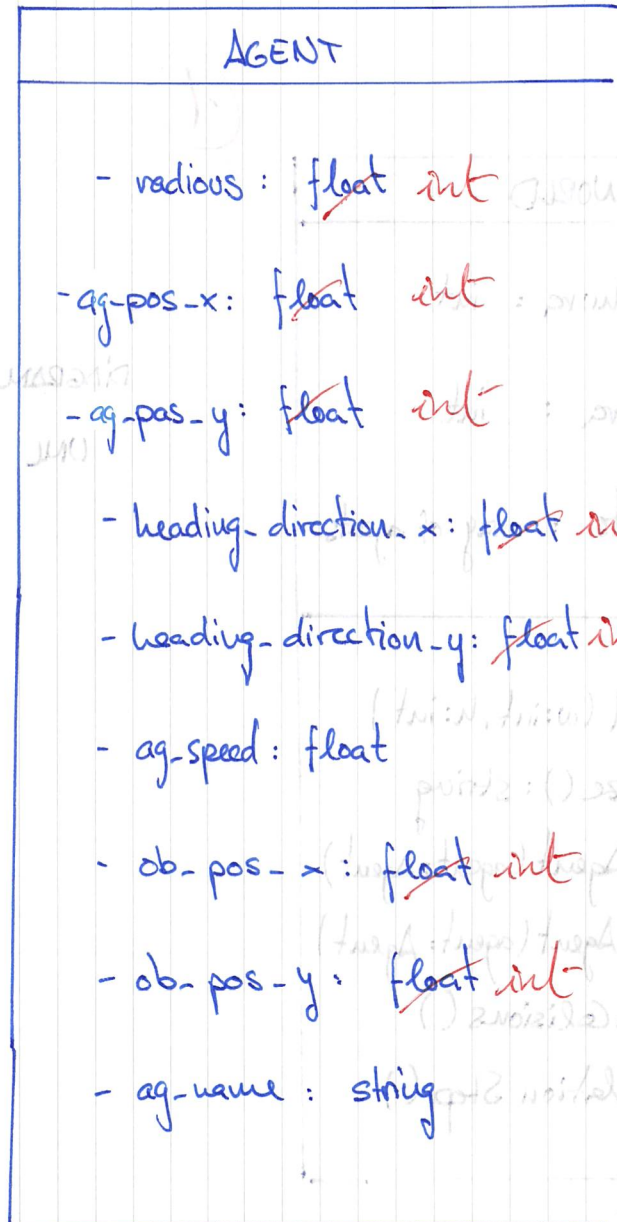 AGENT
- radious : float int
- ag-pos-x: float int
- ag-pas-y: float int
- heading_direction_x: float in
- heading_direction_y: float in
- ag_speed : float
- ob_pos_x : float int
- ob_pos_y : float int
- ag_name : string